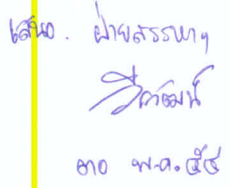 เสนอ. ฝ่ายสรรหาฯ
๓๐ พ.ค. ๕๔